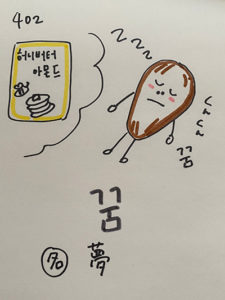 402
허니버터
아몬드
zzz
zzz
꿈
꿈
名 夢